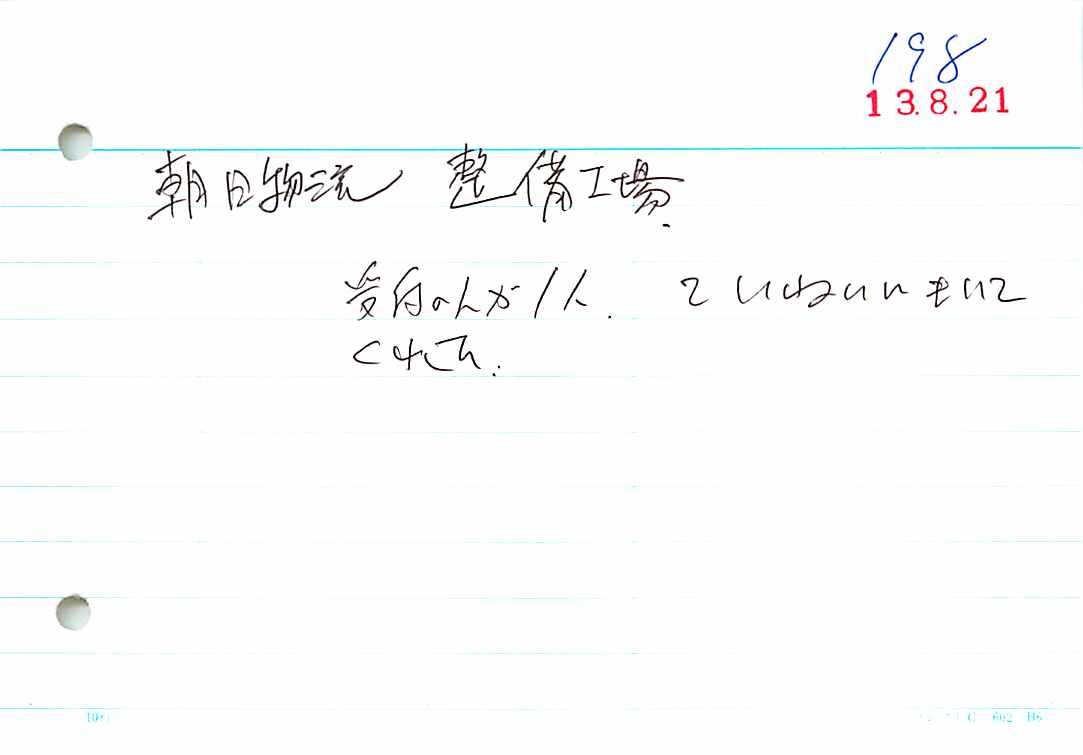 198
13.8.21
朝日物流 整備工場.
受付の人が1人. ていねいにきいて
くれた.